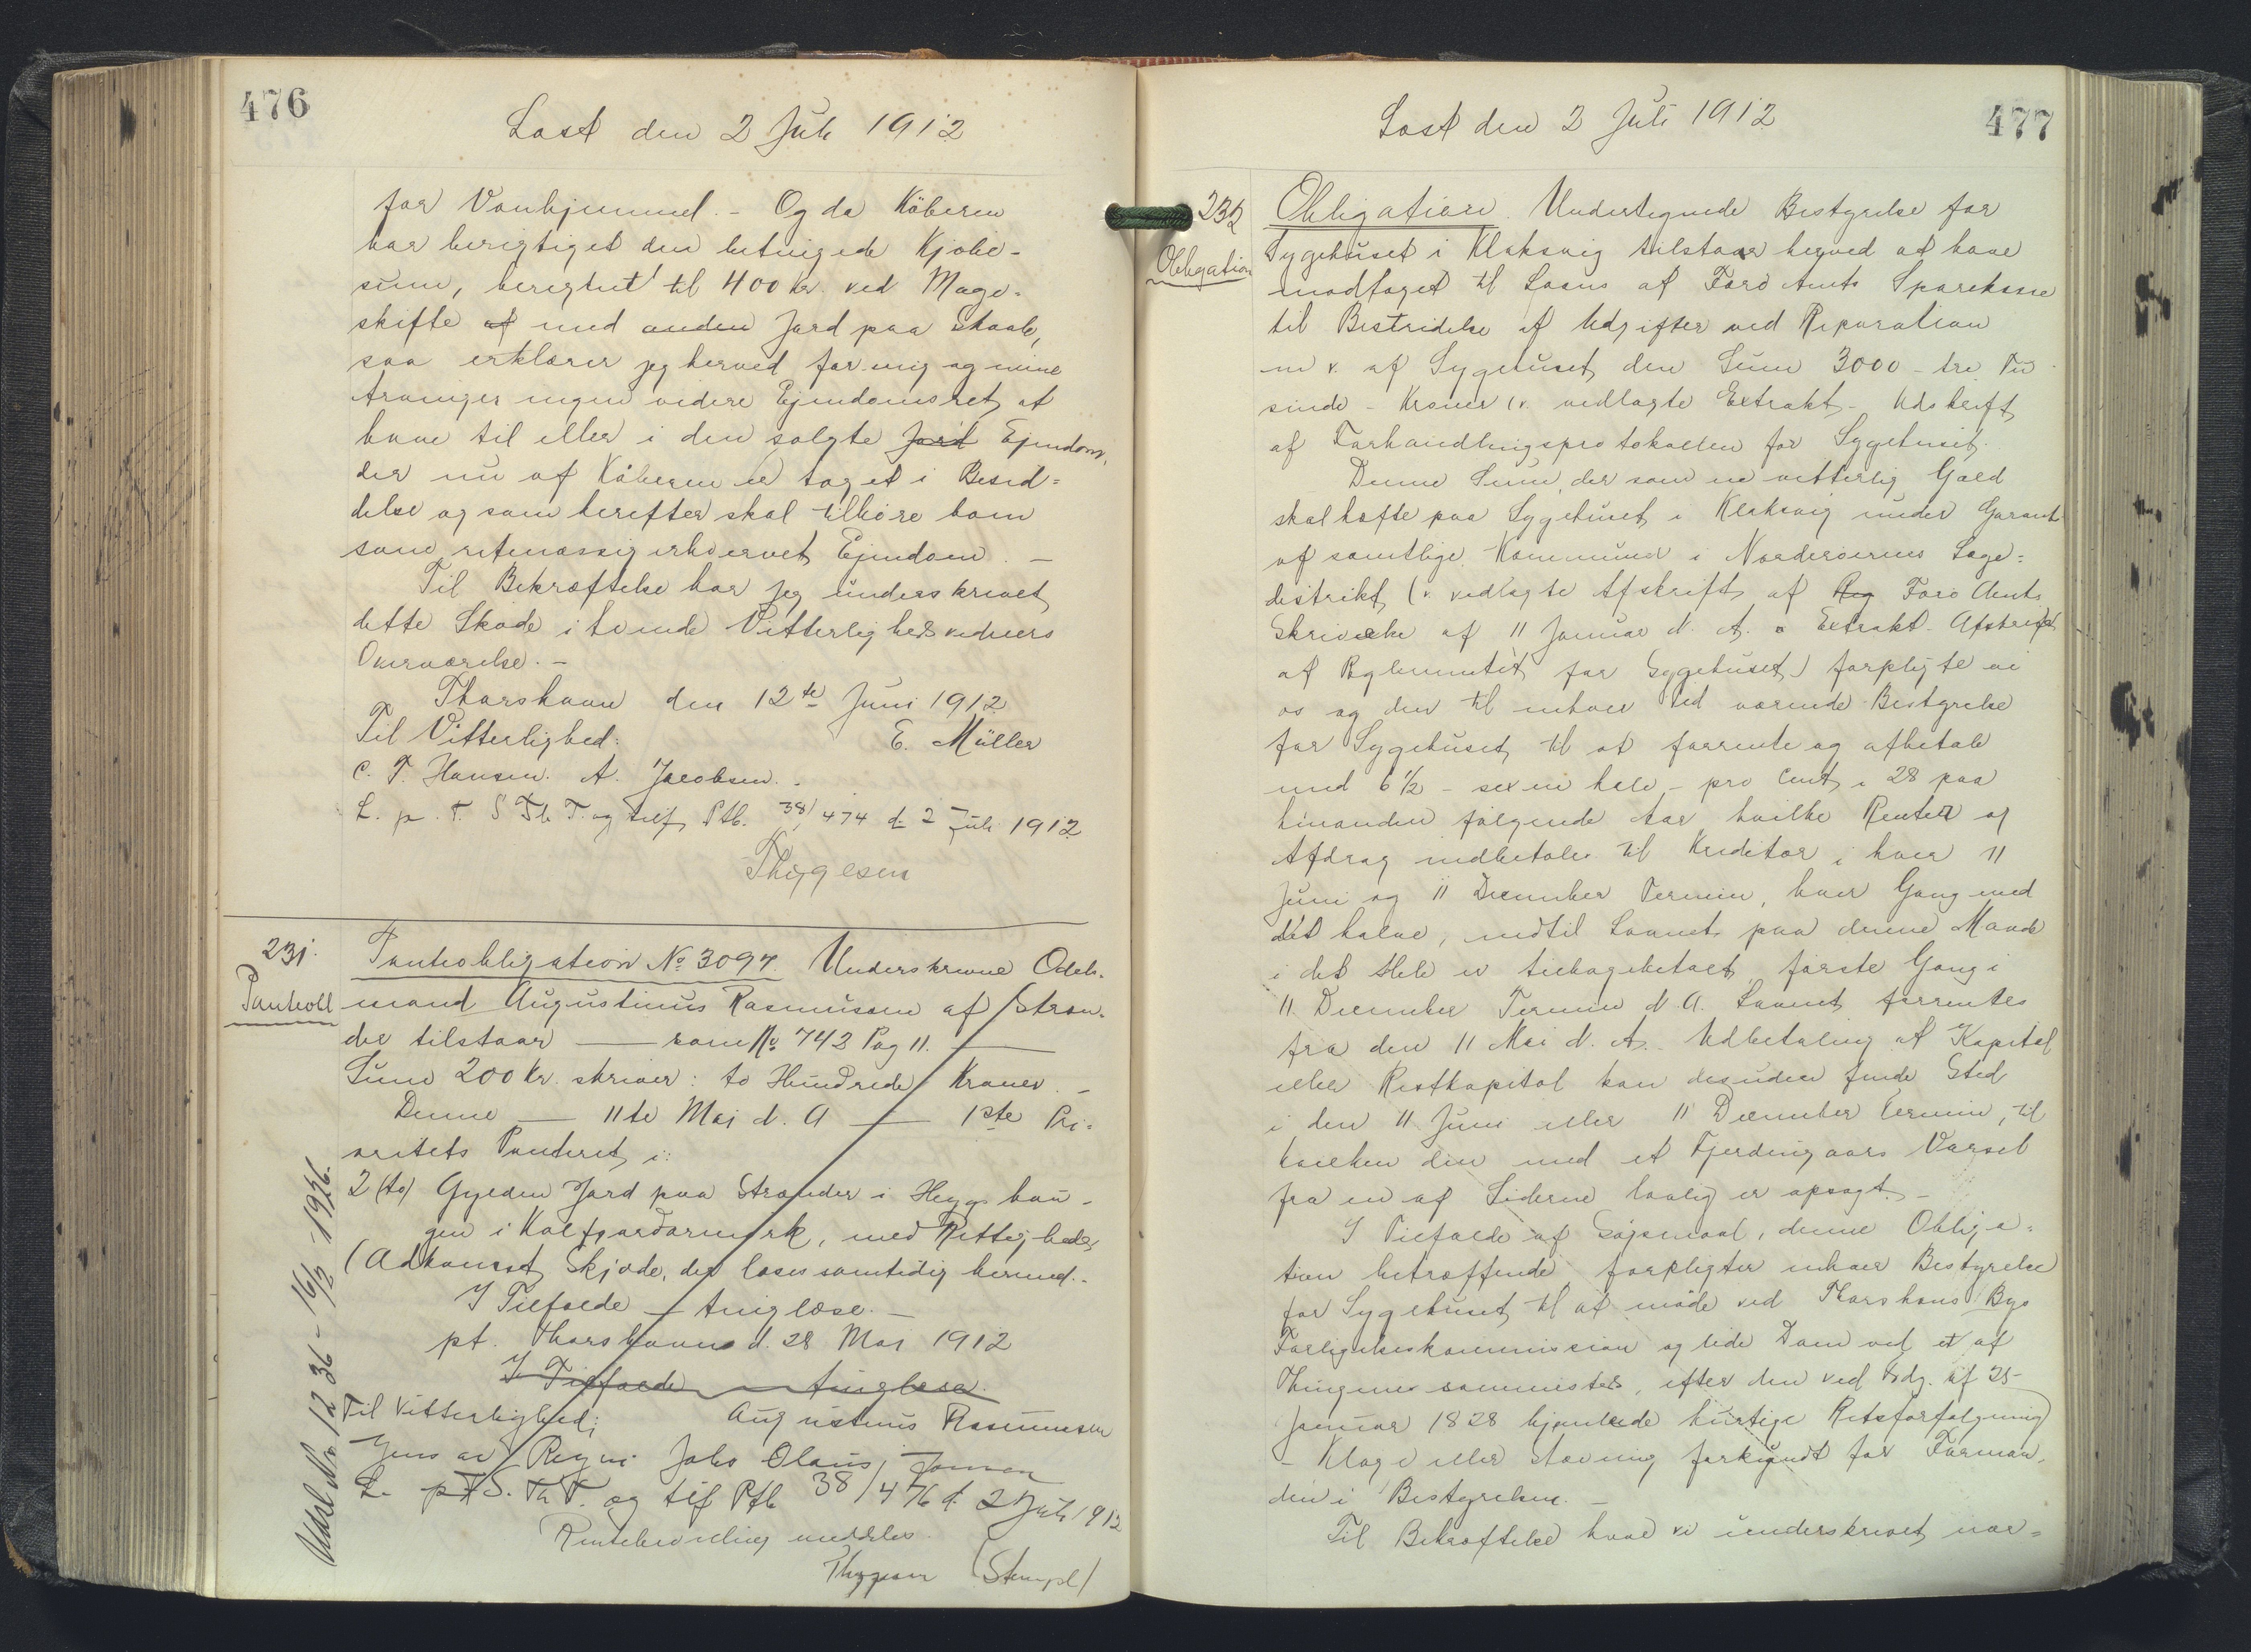 476
Læst den 2 Juli 1912
for Vanhjemmel. - Og da Köberen
har berigtiget den betingede Kjøbe-
sum, beregnet til 400 Kr. ved Mage-
skifte af med anden Jord paa Skaale,
saa erklærer jeg herved for mig og mine
Arvinger ingen videre Ejendomsret at
have til eller i den solgte Jord Ejendom,
der nu af Köberen er taget i Besid-
delse og som herefter skal tilhøre ham
som retmæssig erhvervet Ejendom. -
Til Bekræftelse har jeg underskrevet
dette Skøde i tvende Vitterlighedsvidners
Overværelse. -
Thorshavn den 12te Juni 1912
Til Vitterlighed: E. Müller
C. F. Hansen. A. Jacobsen.
L. p. F. S Th T. og tilf Ptb. 38/474 d. 2 Juli 1912
Thygesen
231.
Pantobl
Pantobligation No 3097. Underskrevne Odels-
mand Augustinus Rasmussen af Stran-
der tilstaar — som No 742 Pag 11. —
Sum 200 Kr. skriver: to Hundrede Kroner. -
Denne — 11te Maj d. A — 1ste Pri-
oritets Panteret i:
2 (to) Gylden Jord paa Strander i Heygs hau-
gen i Kalfgardarmørk, med Rettigheder
(Adkomst Skjøde, der læses samtidig hermed.-
I Tilfælde — tinglæse. -
pt. Thorshavn d. 28 Maj 1912
I Tilfælde — tinglæse.
Til Vitterlighed; Augustinus Rasmussen
Jens av Reyni Johs Olaus Jensen
L. p F S. Th T. og tilf Ptb 38/476 d. 2 Juli 1912
Rentebevilling meddeles.
Thygesen (Stempel)
Udsl. Nr. 1236 - 16/12 - 1926.
Læst den 2 Juli 1912
477
232
Obligation
Obligation. Undertegnede Bestyrelse for
Sygehuset i Klaksvig tilstaar herved at have
modtaget til Laans af Færø Amts Sparekasse
til Bestridelse af Udgifter ved Reparation
m v. af Sygehuset den Sum 3000 - tre Tu-
sinde - Kroner (v. vedlagte Extrakt- Udskrift
af Forhandlingsprotokollen for Sygehuset.
Denne Sum, der som en vitterlig Gæld
skal hæfte paa Sygehuset i Klaksvig under Garanti
af samtlige Kommuner i Norderøernes Læge-
distrikt (v. vedlagte Afskrift af Reg Færø Amts
Skrivelse af 11 Januar d. A. o Extrakt- Afskrift
af Reglementet for Sygehuset) forpligte vi
os og den til enhver Tid værende Bestyrelse
for Sygehuset til at forrente og afbetale
med 6 1/2 - sex en halv - pro Cent i 28 paa
hinanden følgende Aar hvilke Renter og
Afdrag indbetales til Kreditor i hver 11
Juni og 11 December Termin, hver Gang med
det halve, indtil Laanet paa denne Maade
i det Hele er tilbagebetalt, første Gang i
11 December Termin d. A. Laanet forrentes
fra den 11 Mai d. A. Udbetaling af Kapital
eller Restkapital kan desuden finde Sted
i den 11 Juni eller 11 December Termin, til
hvilken den med et Fjerdingaars Varsel
fra en af Siderne lovlig er opsagt. -
I Tilfælde af Søgsmaal, denne Obliga-
tion betræffende forpligter enhver Bestyrelse
for Sygehuset til at møde ved Thorshavns Bys
Forligelseskommission og lide Dom ved et af
Thingene sammesteds, efter den ved Frdg. af 25-
Januar 1828 hjemlede hurtige Retsforfølgning
- Klage eller Stævning forkyndt for Forman-
den i Bestyrelsen. -
Til Bekræftelse have vi underskrevet nær-